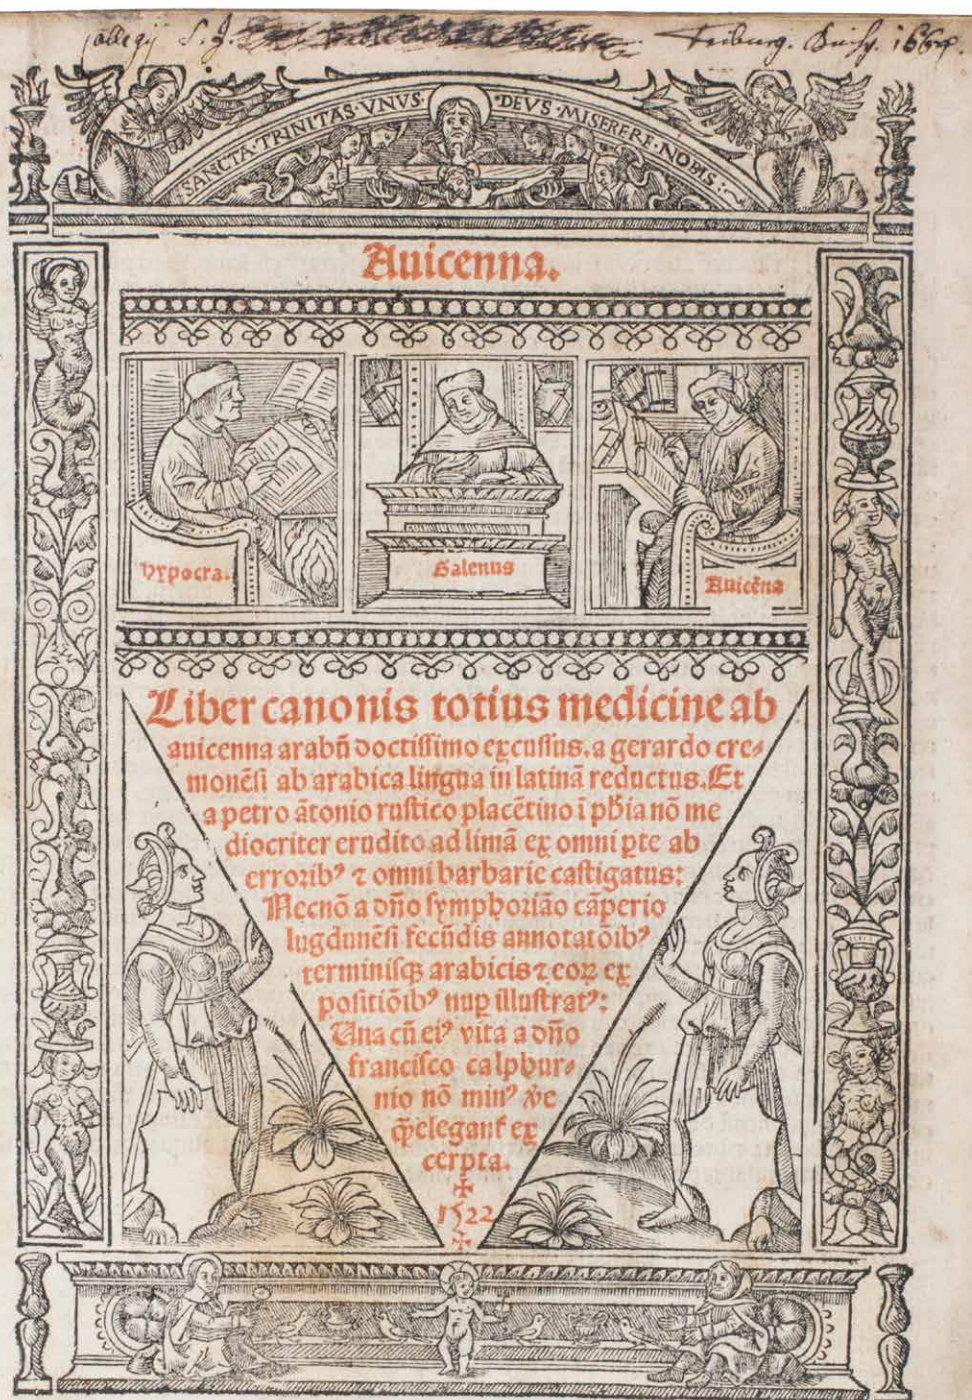 Collegij S. J. Friburg. Brisg. 1664.
SANCTA · TRINITAS · VNVS · DEVS · MISERERE · NOBIS :
Auicenna.
Hypocra.
Galenus
Auicēna
Liber canonis totius medicine ab
auicenna arabū doctissimo excussus. a gerardo cre⸗
monēsi ab arabica lingua in latinā reductus. Et
a petro ātonio rustico placētino ī phīa nō me
diocriter erudito ad limā ex omni ꝑte ab
erroribꝰ ⁊ omni barbarie castigatus:
Necnō a dn̄o symphoriāo cāperio
lugdunēsi fecūdis annotatōibꝰ
terminisqꝫ arabicis ⁊ eoꝝ ex
positiōibꝰ nuꝑ illustratꝰ:
Una cū eiꝰ vita a dn̄o
francisco calphur⸗
nio nō minꝰ v̄e
q̄ꝫ eleganť ex
cerpta.
✠
1522
✠